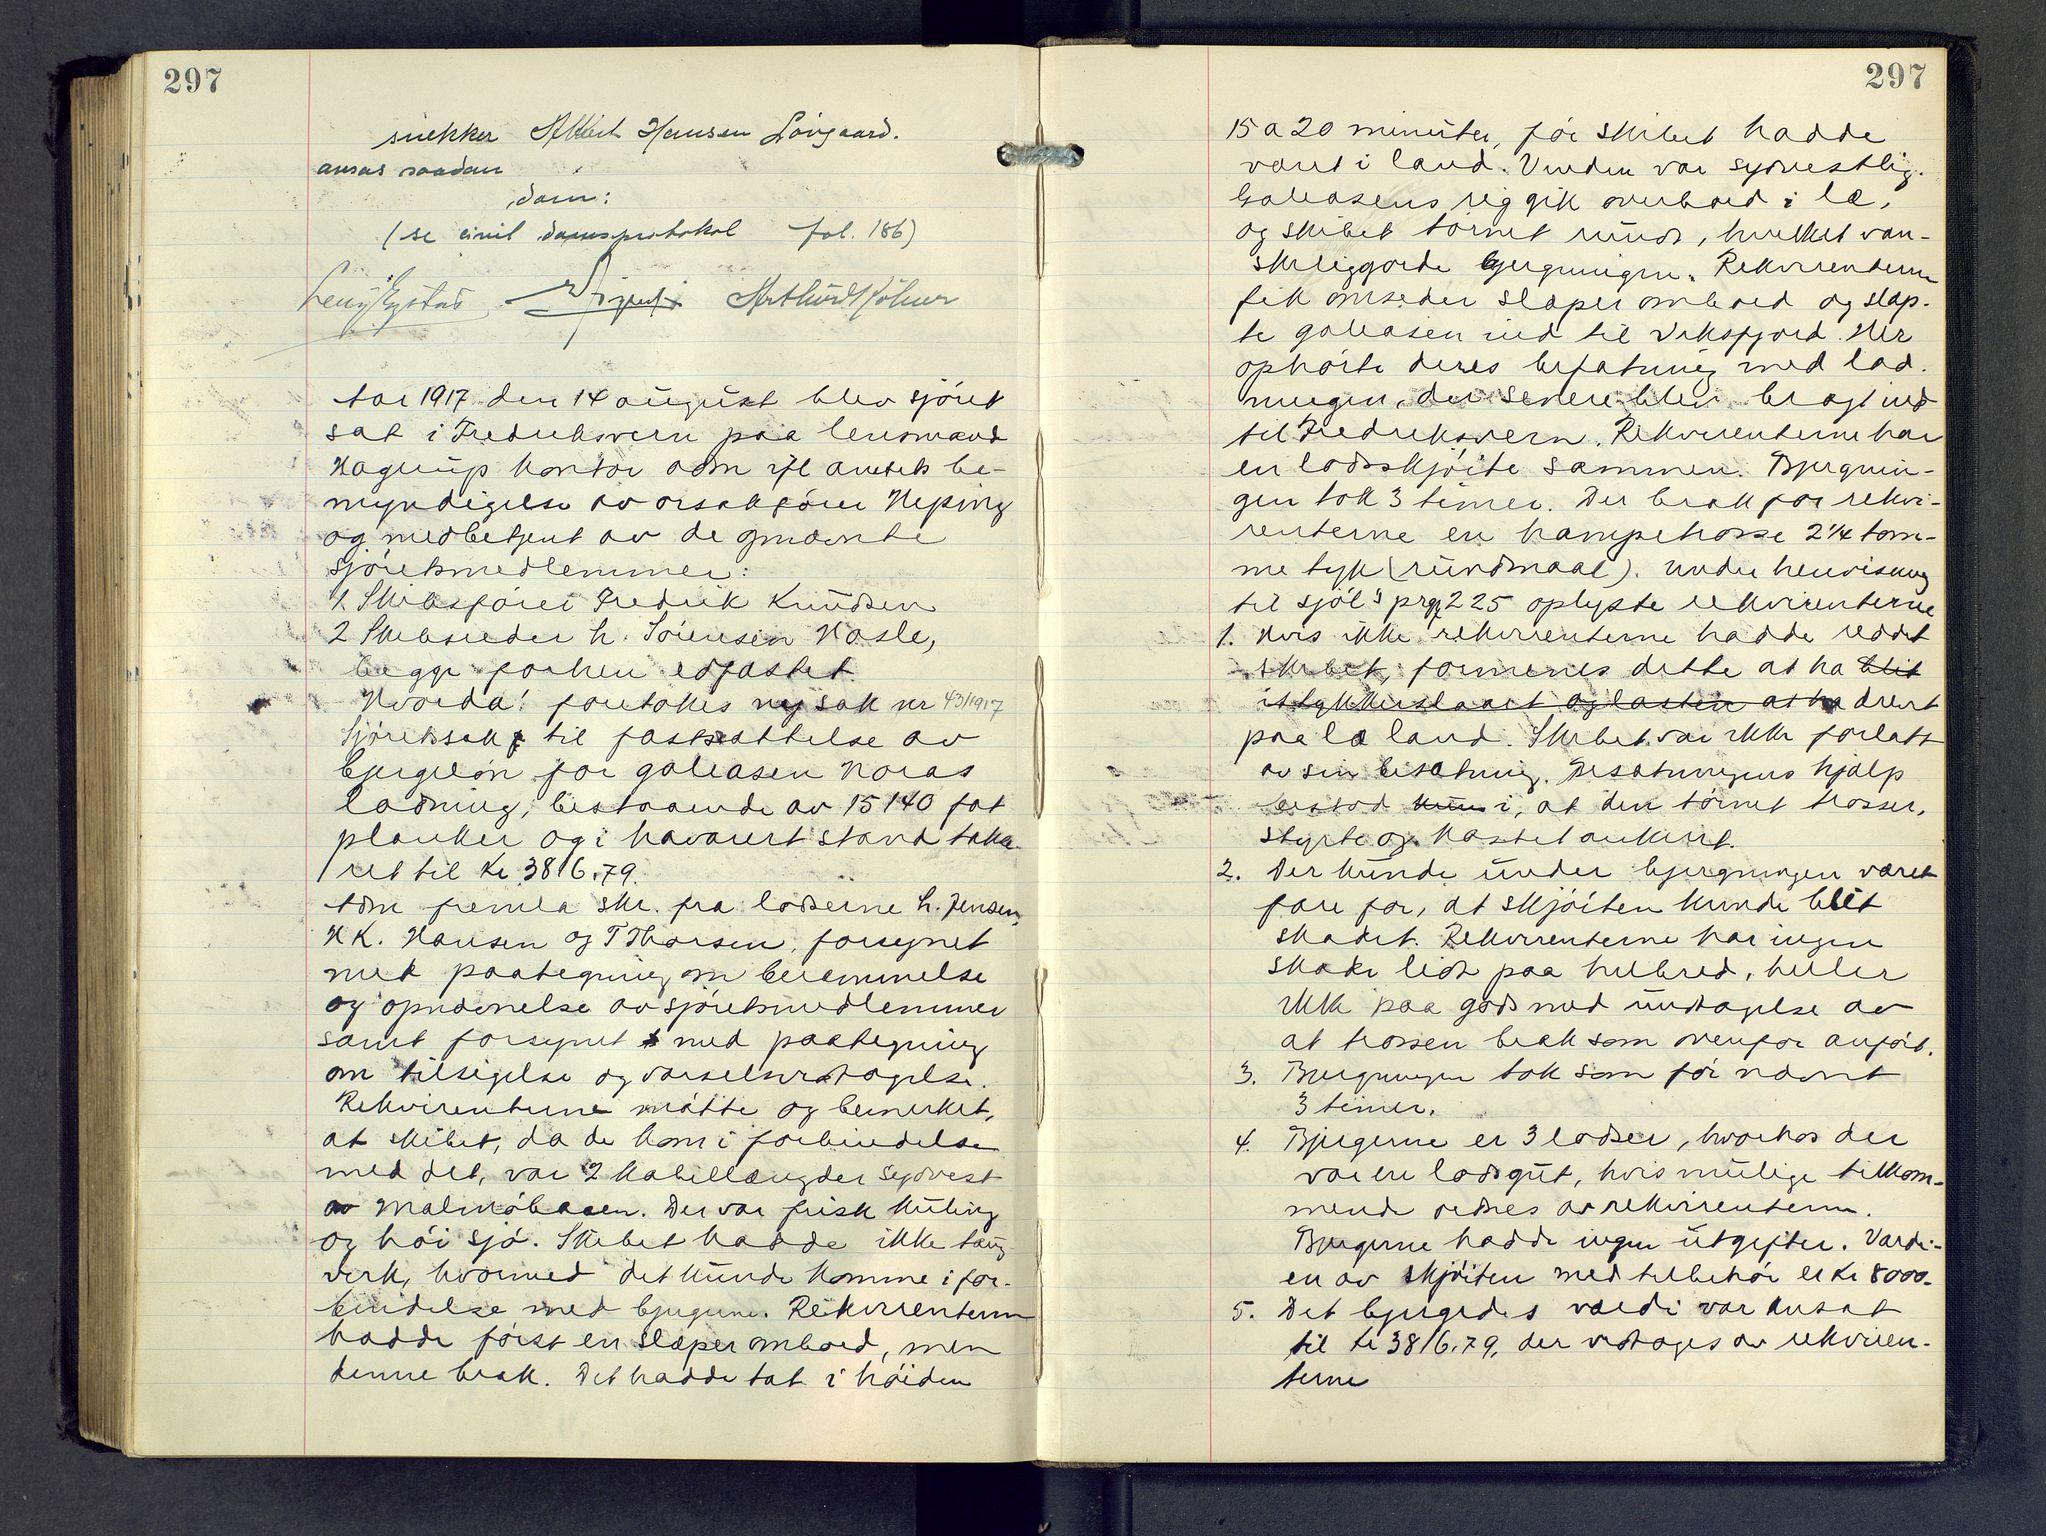 297
snekker Albert Hansen Lövgaard.
avsas saadan
dom:
(se civil domsprotokol fol. 186)
Arthur Köhner
Aar 1917 den 14 august blev sjöret
sat i Fredriksvern paa lensmand
Hagrup kontor adm ifl amtets be-
myndigelse av orsakförer Hesping
og medbetjent av de opnævnte
sjöretsmedlemmer:
1. Skibsförer Fredrik Knudsen
2 Skibsreder h. Sörensen Hasle,
begge forhen edfæstet.
Hvorda: foretokes ny sak nr 43/1917
Sjöretssak til fastsættelse av
bjergelön for galeasen Noras
ladning, bestaaende av 15140 fot
planker og i havarert stand takse-
ret til Kr 3816.79.
Adm fremla skr. fra lodserne L. Jensen,
H K. Hansen og T Thorsen, forsynet
med paategning om berammelse
og opnævnelse av sjöretsmedlemmer
samt forsynet med paategning
om tilsigelse og varselsvedtagelse.
Rekvirenterne mötte og bemerket,
at skibet, da de kom i forbindelse
med det, var 2 kabellængder sydvest
av Malmöbaaen. Der var frisk kuling
og höi sjö. Skibet hadde ikke taug
verk, hvormed det kunde komme i for-
bindelse med bjergerne. Rekvirenterne
hadde först en slæper ombord, men
denne brak. Det hadde tat i höiden
297
15 a 20 minuter, för skibet hadde
været i land. Vinden var sydvestlig.
Galeasens rig gik overbord i læ,
og skibet törnet rundt, hvilket van-
skeliggjorde bjergningen. Rekvirenterne
fik omsider slæper ombord og slæp-
te galeasen ind til Viksfjord. Her
ophörte deres befatning med lad-
ningen, der senere blev bragt ind
til Fredriksvern. Rekvirenterne har
en lodsskjöite sammen. Bjergnin-
gen tok 3 timer. Der brak for rekvi-
renterne en hampetrosse 2 1/4 tom-
me tyk (rundmaal). Under henvisning
til sjöl's prgf 225 oplyste rekvirenterne
1. Hvis ikke rekvirenterne hadde reddet
skibet, formenes dette at ha blit
istykkerslaaet og lasten at ha drevt
paa le land. Skibet var ikke forlatt
av sin besætning. Besætningens hjælp
bestod kun i, at den törnet trosser,
styrte og kastet ankert.
2. Der kunde under bjergningen været
fare for, at skjöiten kunde blit
skadet. Rekvirenterne har ingen
skade lidt paa helbred, heller
ikke paa gods med undtagelse av
at trossen brak som ovenfor anfört.
3. Bjergningen tok som för nævnt
3 timer.
4. Bjergerne er 3 lodser, hvorhos der
var en lodsgut, hvis mulige tilkom-
mende ordnes av rekvirenterne.
Bjergerne hadde ingen utgifter. Værdi-
en av skjöiten med tilbehör er Kr 8000.-
5. Det bjergedes værdi var ansat
til Kr 3816,79, der vedtages av rekviren-
terne